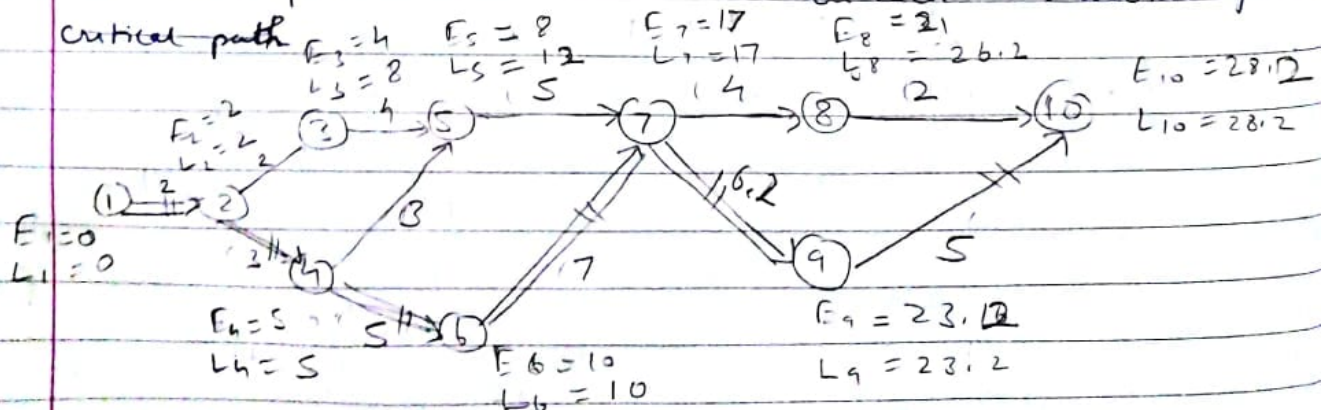 critical path
E3 = 4
L3 = 8
E5 = 8
L5 = 12
E7 = 17
L7 = 17
E8 = 21
L8 = 26.2
E10 = 28.2
L10 = 28.2
E2 = 2
L2 = 2
3 4 5 5 7 4 8 2 10
2
1 2 2
E1 = 0
L1 = 0
3
3 4
7
6.2
9
5
E4 = 5
L4 = 5
5 6
E6 = 10
L6 = 10
E9 = 23.2
L9 = 23.2